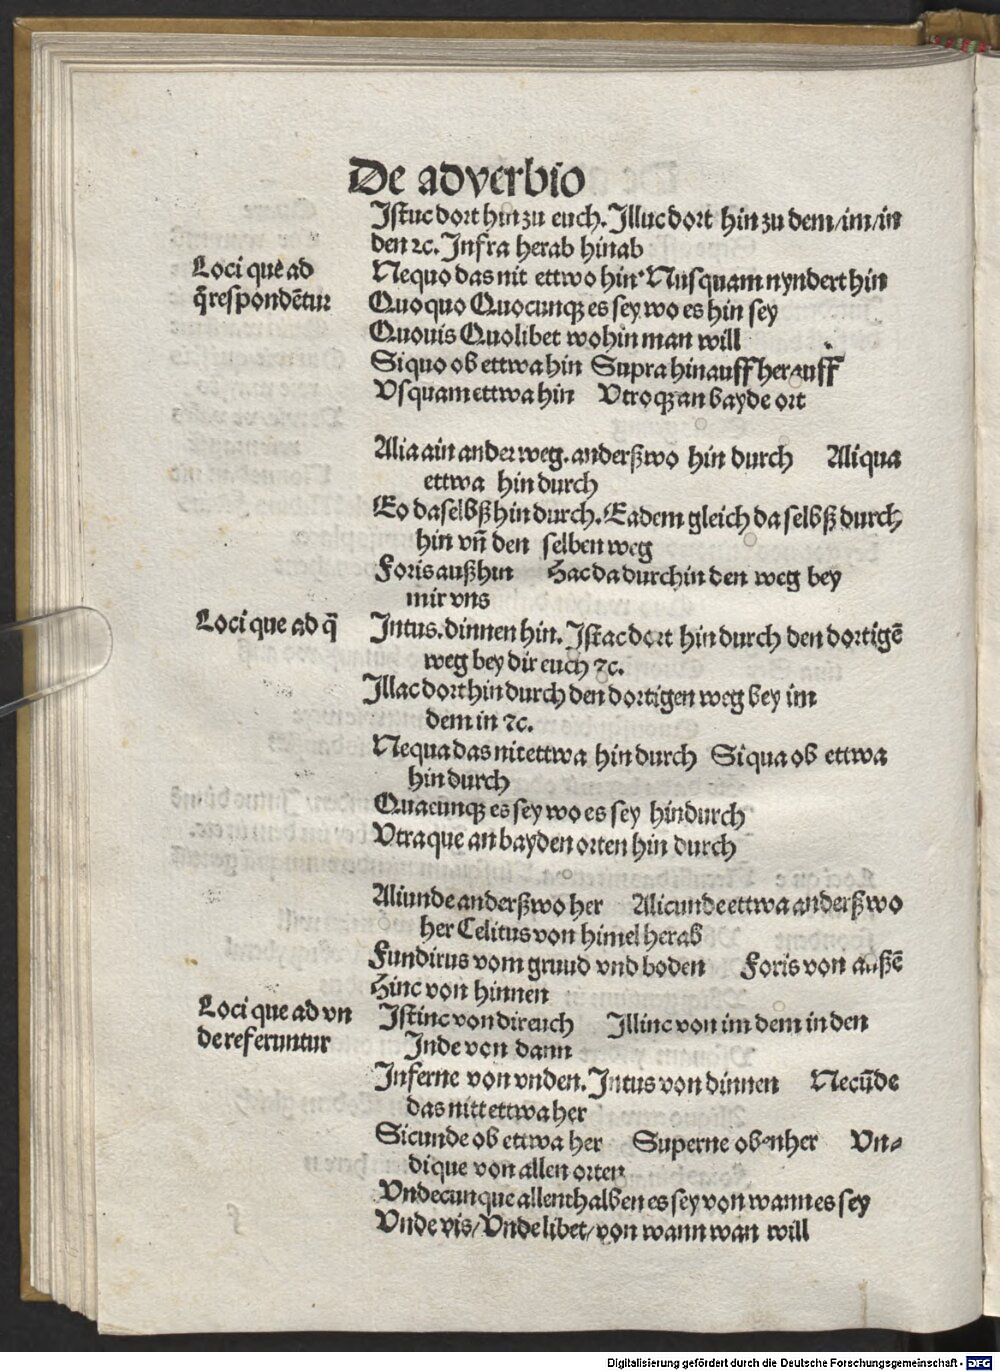 De adverbio
Jstuc dort hin zu euch. Jlluc dort hin zu dem/im/in
den ⁊c. Jnfra herab hinab
Loci que ad
Nequo das nit ettwo hin. Nusquam nyndert hin
q̄ respondētur
Quoquo Quocunqꝫ es sey wo es hin sey
Quouis Quolibet wohin man will
Siquo ob ettwa hin Supra hinauff herauff
Vsquam ettwa hin Vtroqꝫ an bayde ort
Alia ain ander weg. anderßwo hin durch Aliqua
ettwa hin durch
Eo daselbß hin durch. Eadem gleich daselbß durch
hin vn̄ den selben weg
Foris außhin Hac da durchin den weg bey
mir vns
Loci que ad q̄
Jntus. dinnen hin. Jstac dort hin durch den dortigē
weg bey dir euch ⁊c.
Jllac dort hin durch den dortigen weg bey im
dem in ⁊c.
Nequa das nit ettwa hin durch Siqua ob ettwa
hin durch
Quacunqꝫ es sey wo es sey hindurch
Vtraque an bayden orten hin durch
Aliunde anderßwo her Alicunde ettwa anderßwo
her Celitus von himel herab
Funditus vom grund vnd boden Foris von außē
Hinc von hinnen
Loci que ad vn
Jstinc von dir euch Jllinc von im dem in den
de referuntur
Jnde von dann
Jnferne von vnden. Jntus von dinnen Necūde
das nitt ettwa her
Sicunde ob ettwa her Superne oben her Vn-
dique von allen orten
Vndecunque allenthalben es sey von wann es sey
Vnde vis/Vnde libet/von wann wan will
Digitalisierung gefördert durch die Deutsche Forschungsgemeinschaft - DFG